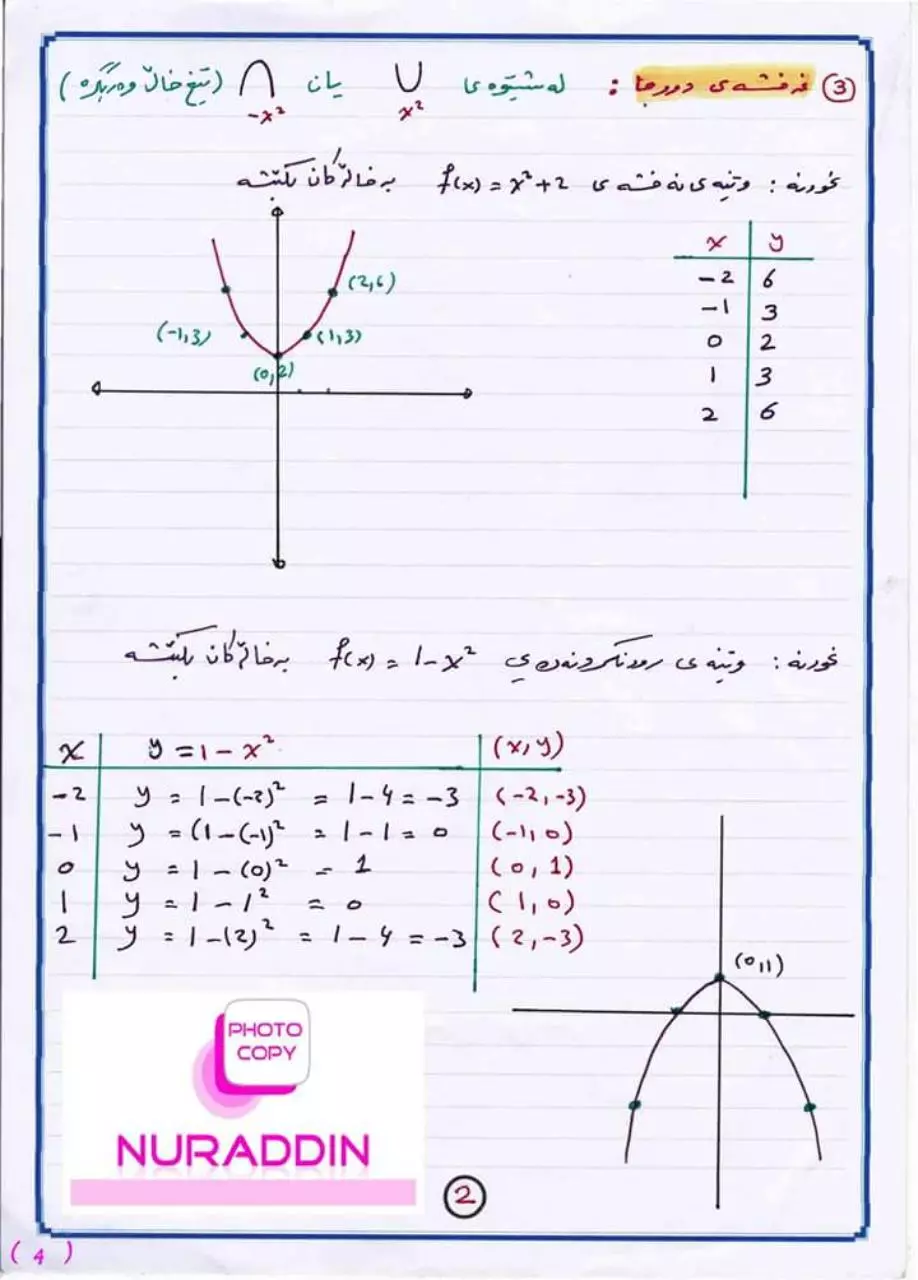 ③ نەخشەی دووجا : لە شێوەی ∪ یان ∩ (پێنج خاڵ وەربگرە)
x² -x²
نموونە : وێنەی نەخشەی f(x) = x²+2 بە خاڵەکان بکێشە
x y
-2 6
-1 3
0 2
1 3
2 6
(2,6)
(-1,3) (1,3)
(0,2)
نموونە : وێنەی ڕوونکردنەوەیی f(x) = 1-x² بە خاڵەکان بکێشە
x y = 1 - x² (x,y)
-2 y = 1-(-2)² = 1-4 = -3 (-2,-3)
-1 y = (1-(-1)² = 1-1 = 0 (-1,0)
0 y = 1-(0)² = 1 (0,1)
1 y = 1-1² = 0 (1,0)
2 y = 1-(2)² = 1-4 = -3 (2,-3)
(0,1)
PHOTO
COPY
NURADDIN
2
(4)